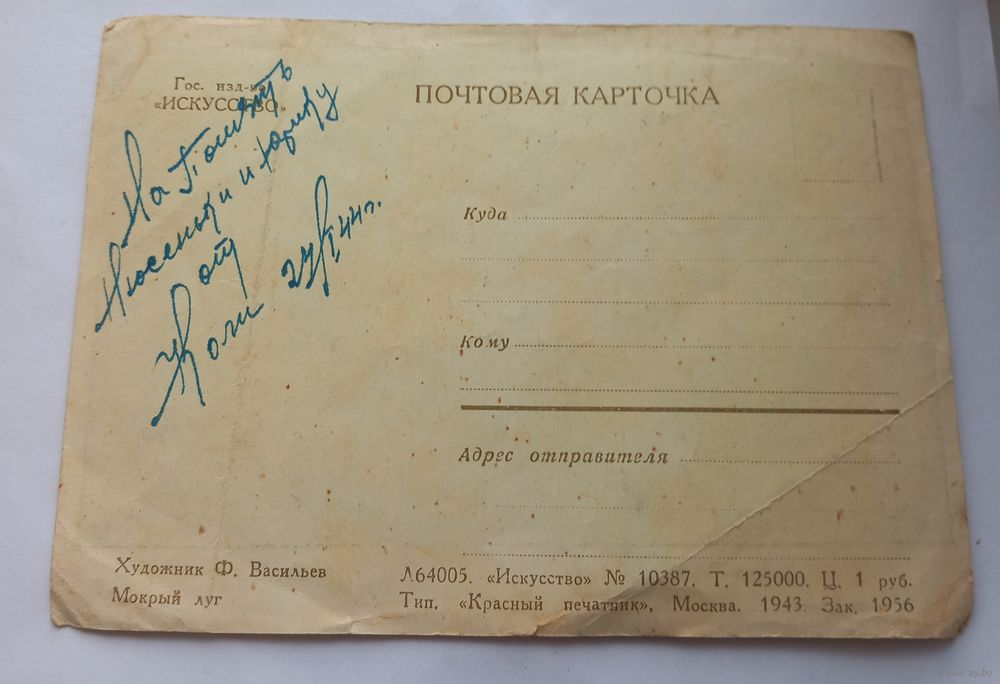 Гос. изд-во
«ИСКУССТВО»
ПОЧТОВАЯ КАРТОЧКА
На Память
Люсеньки и Юрику
от
Коли 27/I 44 г.
Куда
Кому
Адрес отправителя
Художник Ф. Васильев
Мокрый луг
Л64005. «Искусство» № 10387. Т. 125000. Ц. 1 руб.
Тип. «Красный печатник», Москва. 1943. Зак. 1956
www.ay.by